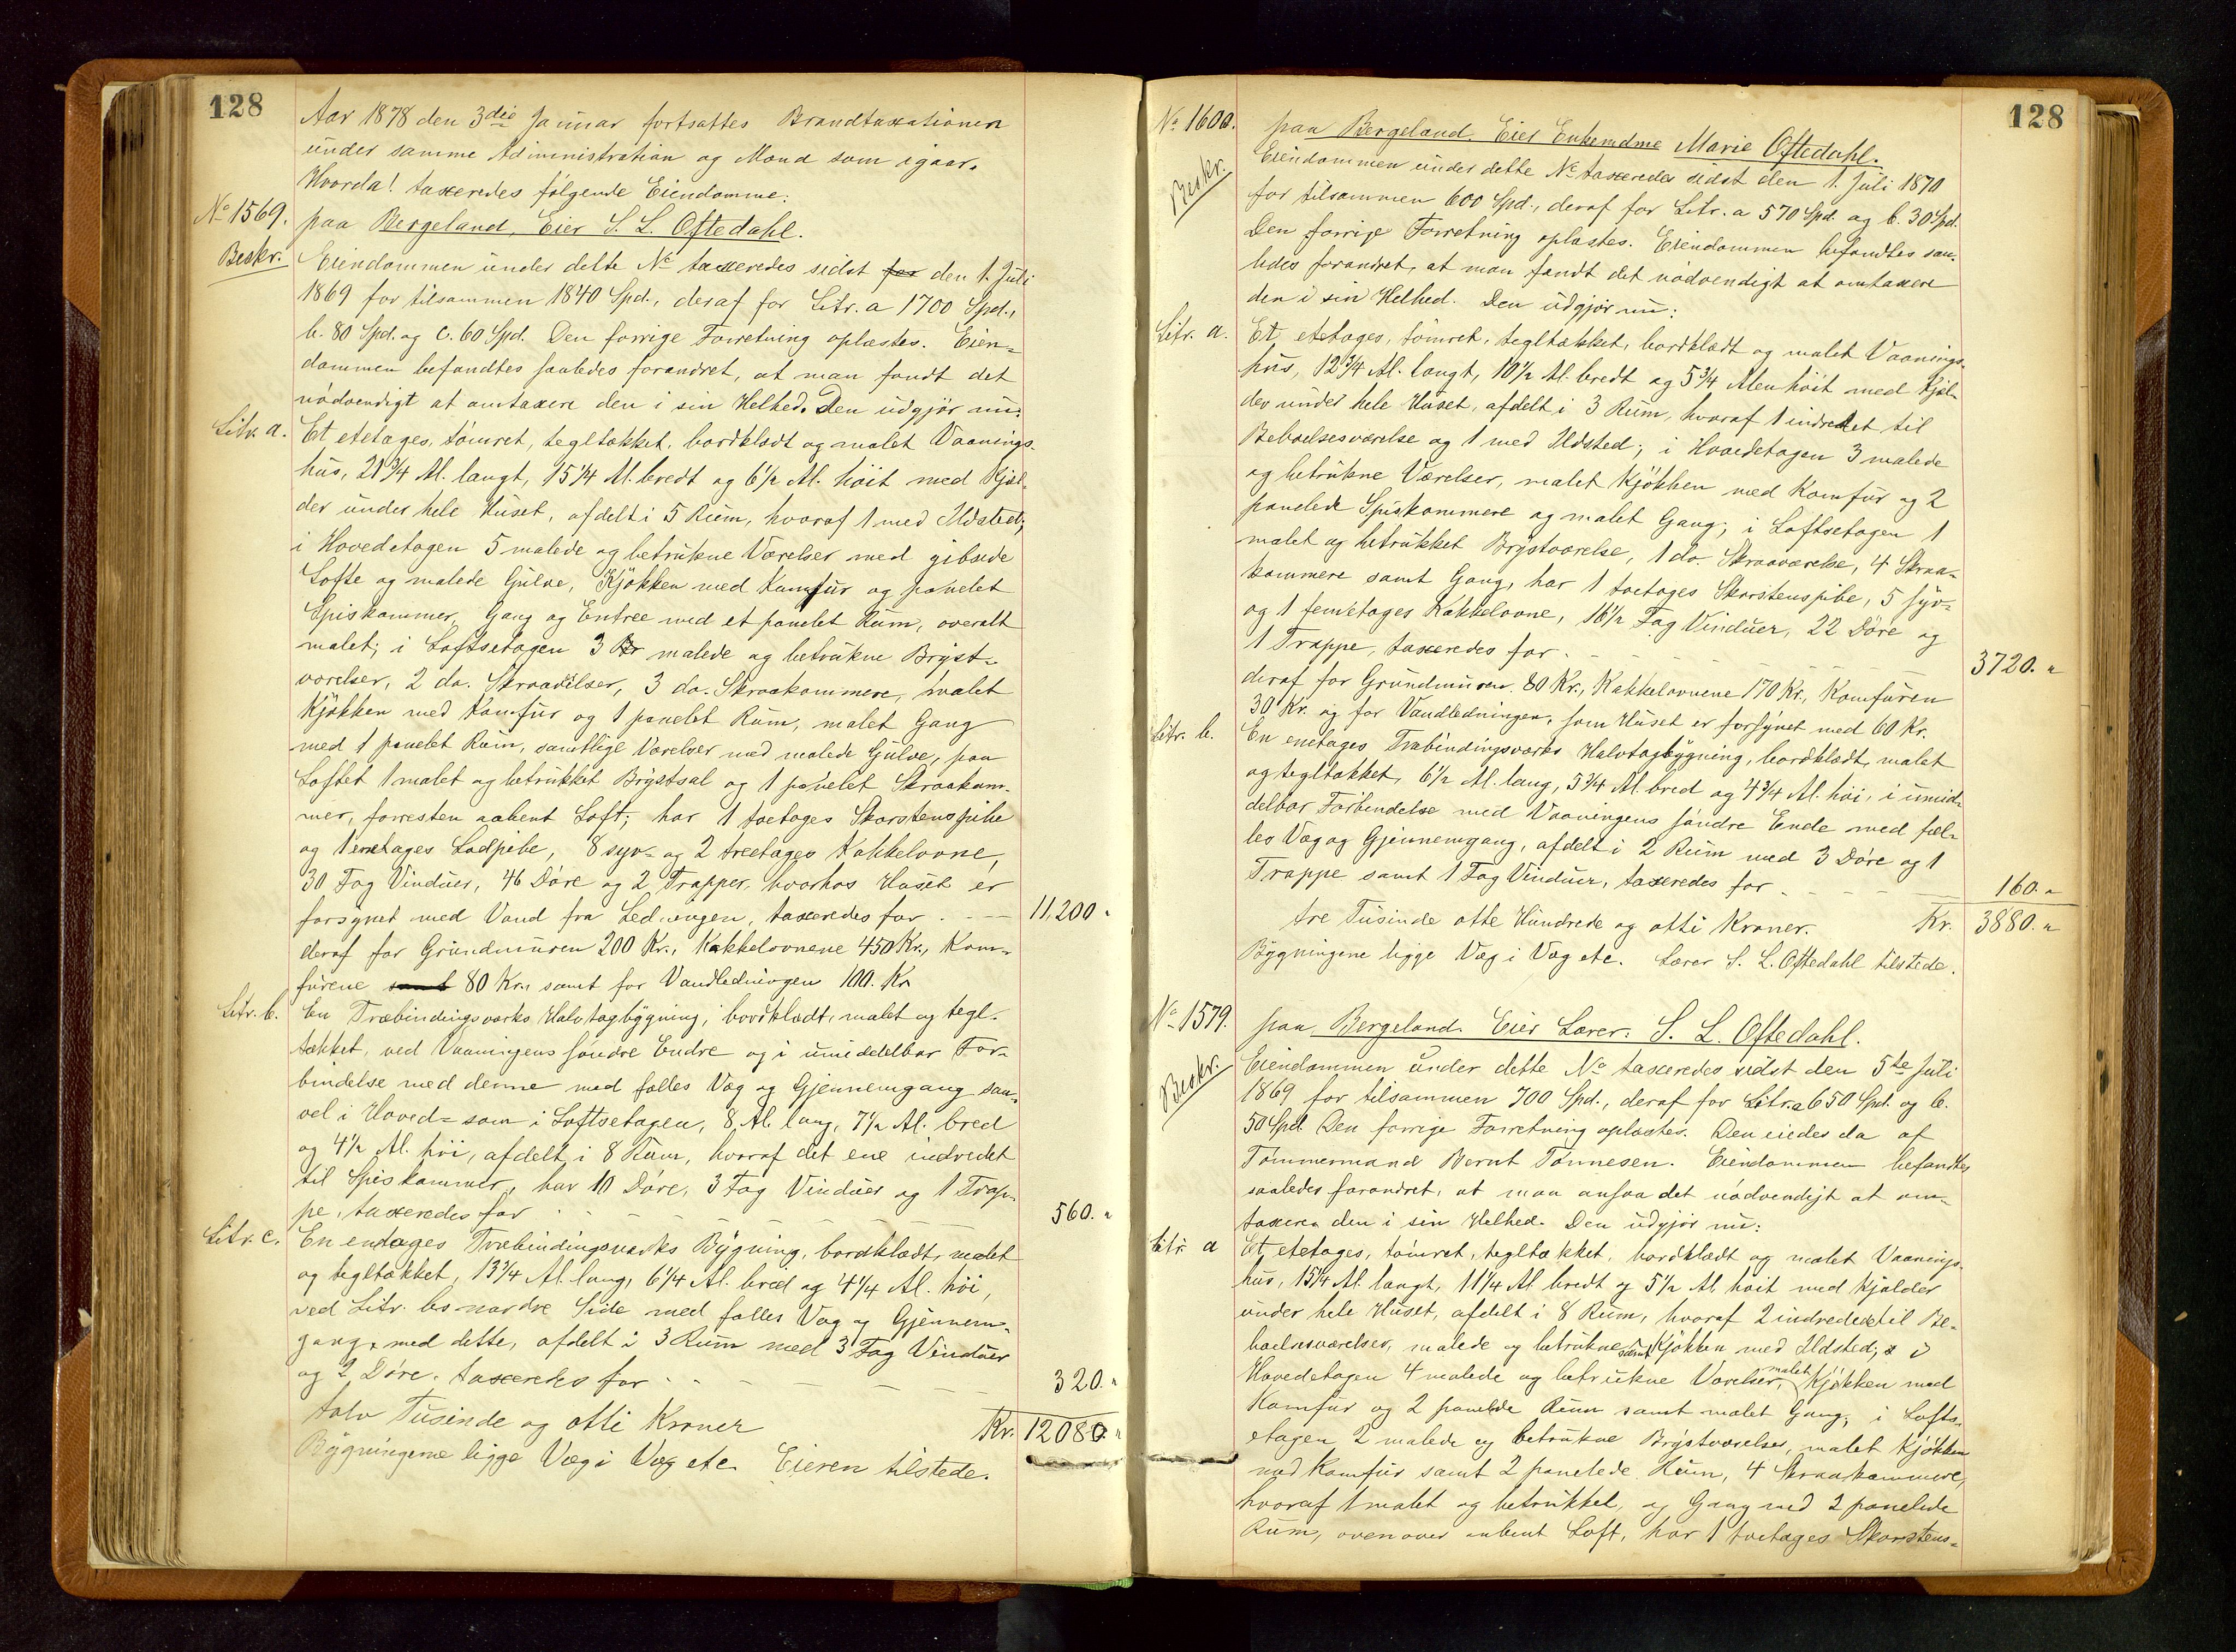 128
Aar 1878 den 3die Januar fortsattes Brandtaxationen
under samme Administration og Mænd som igaar.
Hvorda! taxeredes følgende Eiendomme:
No 1569. paa Bergeland. Eier S. L. Oftedahl.
Beskr. Eiendommen under dette No taxeredes sidst for den 1. Juli
1869 for tilsammen 1840 Spd., deraf for Litr. a 1700 Spd.,
b. 80 Spd. og c. 60 Spd. Den forrige Forretning oplæstes. Eien=
dommen befandtes saaledes forandret, at man fandt det
nödvendigt at omtaxere den i sin Helhed. Den udgjör nu:
Litr. a. Et etetages, tömret, tegltækket, bordklædt og malet Vaanings-
hus, 21 3/4 Al. langt, 15 1/4 Al. bredt og 6 1/2 Al. höit med Kjæl-
der under hele Huset, afdelt i 5 Rum, hvoraf 1 med Ildsted;
i Hovedetagen 5 malede og betrukne Værelser med gibsede
Lofte og malede Gulve, Kjökken med Komfur og panelet
Spiskammer, Gang og Entree med et panelet Rum, overalt
malet; i Loftsetagen 3 malede og betrukne Bryst-
værelser, 2 do. Skraaværelser, 3 do. Skraakammere, malet
Kjökken med Komfur og 1 panelet Rum, malet Gang
med 1 panelet Rum, samtlige Værelser med malede Gulve, paa
Loftet 1 malet og betrukket Brystsal og 1 panelet Skraakam-
mer, forresten aabent Loft; har 1 toetages Skorstenspibe
og 1 enetages Lodpibe, 8 syv- og 2 treetages Kakkelovne,
30 Fag Vinduer, 46 Döre og 2 Trapper, hvorhos Huset er
forsynet med Vand fra Ledningen, taxeredes for 11,200 "
deraf for Grundmuren 200 Kr., Kakkelovnene 450 Kr., Kom-
furene samt 80 Kr., samt for Vandledningen 100. Kr
Litr. b. En Træbindingsværks Halvtagbygning, bordklædt, malet og tegl-
tækket, ved Vaaningens söndre Endre og i umiddelbar For-
bindelse med denne med fælles Væg og Gjennemgang saa-
vel i Hoved= som i Loftsetagen, 8 Al. lang, 7 1/2 Al. bred
og 4 1/2 Al. höi, afdelt i 8 Rum, hvoraf det ene indredet
til Spiskammer, har 10 Döre, 3 Fag Vinduer og 1 Trap-
pe, taxeredes for 560. "
Litr. c. En endages Træbindingsværks Bygning, bordklædt, malet
og tegltækket, 13 3/4 Al. lang, 6 1/4 Al. bred og 4 1/4 Al. höi,
ved Litr. bs nordre Side med fælles Væg og Gjennem-
gang med dette, afdelt i 3 Rum med 3 Fag Vinduer
og 2 Döre. taxeredes for 320. "
tolv Tusinde og otti Kroner Kr. 12080. "
Bygningerne ligge Væg i Væg etc. Eieren tilstede.
128
No 1600. paa Bergeland. Eier Enkemdme Marie Oftedahl.
Beskr. Eiendommen under dette No taxeredes sidst den 1. Juli 1870
for tilsammen 600 Spd., deraf for Litr. a 570 Spd. og b. 30 Spd.
Den forrige Forretning oplæstes. Eiendommen befandtes saa-
ledes forandret, at man fandt det nödvendigt at omtaxere
den i sin Helhed. Den udgjör nu:
Litr. a. Et etetages, tömret, tegltækket, bordklædt og malet Vaanings-
hus, 12 3/4 Al. langt, 10 1/2 Al. bredt og 5 3/4 Alen höit med Kjæl-
der under hele Huset, afdelt i 3 Rum, hvoraf 1 indredet til
Beboelsesværelse og 1 med Ildsted; i Hovedetagen 3 malede
og betrukne Værelser, malet Kjökken med Komfur og 2
panelede Spiskammere og malet Gang; i Loftsetagen 1
malet og betrukket Brystværelse, 1 do. Skraaværelse, 4 Skraa-
kammere samt Gang, har 1 toetages Skorstenspibe, 5 syv-
og 1 femetages Kakkelovne, 16 1/2 Fag Vinduer, 22 Döre og
1 Trappe, taxeredes for 3720. "
deraf for Grundmuren 80 Kr., Kakkelovnene 170 Kr., Komfuren
30 Kr. og for Vandledningen, som Huset er forsynet med 60 Kr.
Litr. b. En enetages Træbindingsværks Halvtagbygning, bordklædt, malet
og tegltækket, 6 1/2 Al. lang, 5 3/4 Al. bred og 4 3/4 Al. höi, i umid-
delbar Forbindelse med Vaaningens söndre Ende med fæl-
les Væg og Gjennemgang, afdelt i 2 Rum med 3 Döre og 1
Trappe samt 1 Fag Vinduer, taxeredes for 160. "
tre Tusinde otte Hundrede og otti Kroner. Kr. 3880. "
Bygningene ligge Væg i Væg etc. Lærer S. L. Oftedahl tilstede.
No 1579. paa Bergeland. Eier Lærer. S. L. Oftedahl.
Beskr. Eiendommen under dette No taxeredes sidst den 5te Juli
1869 for tilsammen 700 Spd., deraf for Litr. a 650 Spd. og b.
50 Spd. Den forrige Forretning oplæstes. Den eiedes da af
Tömmermand Bernt Tönnesen. Eiendommen befandtes
saaledes forandret, at man ansaa det nödvendigt at om-
taxere den i sin Helhed. Den udgjör nu:
Litr. a Et etetages, tömret, tegltækket, bordklædt og malet Vaanings-
hus, 15 1/4 Al. langt, 11 1/4 Al. bredt og 5 1/2 Al. höit med Kjælder
under hele Huset, afdelt i 8 Rum, hvoraf 2 indredede til Be-
boelsesværelser, malede og betrukne samt Kjökken med Ildsted; i
Hovedetagen 4 malede og betrukne Værelser, malet Kjökken med
Komfur og 2 panelede Rum samt malet Gang; i Lofts-
etagen 2 malede og betrukne Brystværelser, malet Kjökken
med Komfur samt 2 panelede Rum, 4 Skraakammere,
hvoraf 1 malet og betrukket, og Gang med 2 panelede
Rum, ovenover aabent Loft, har 1 toetages Skorstens-